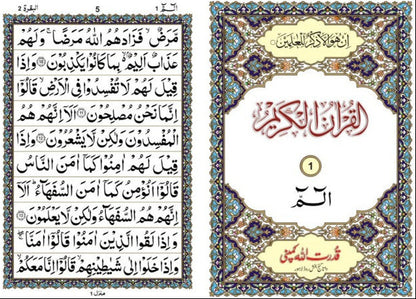 اِنْ هُوَ اِلَّا ذِكْرٌ لِّلْعٰلَمِيْنَ
اَلْقُرْاٰنُ الْكَرِيْمُ
1
الٓمّٓ
قدرت اللہ کمپنی
الٓمّٓ 1 5 البقرة 2
مَّرَضٌ ۙ فَزَادَهُمُ اللّٰهُ مَرَضًا ۚ وَلَهُمْ
عَذَابٌ اَلِيْمٌۢ ۙ بِمَا كَانُوْا يَكْذِبُوْنَ ۝ وَاِذَا
قِيْلَ لَهُمْ لَا تُفْسِدُوْا فِى الْاَرْضِ ۙ قَالُوْٓا
اِنَّمَا نَحْنُ مُصْلِحُوْنَ ۝ اَلَآ اِنَّهُمْ هُمُ
الْمُفْسِدُوْنَ وَلٰكِنْ لَّا يَشْعُرُوْنَ ۝ وَاِذَا
قِيْلَ لَهُمْ اٰمِنُوْا كَمَآ اٰمَنَ النَّاسُ
قَالُوْٓا اَنُؤْمِنُ كَمَآ اٰمَنَ السُّفَهَآءُ ؕ اَلَآ
اِنَّهُمْ هُمُ السُّفَهَآءُ وَلٰكِنْ لَّا يَعْلَمُوْنَ ۝
وَاِذَا لَقُوا الَّذِيْنَ اٰمَنُوْا قَالُوْٓا اٰمَنَّا ۖۚ
وَاِذَا خَلَوْا اِلٰى شَيٰطِيْنِهِمْ ۙ قَالُوْٓا اِنَّا مَعَكُمْ ۙ
منزل ۱